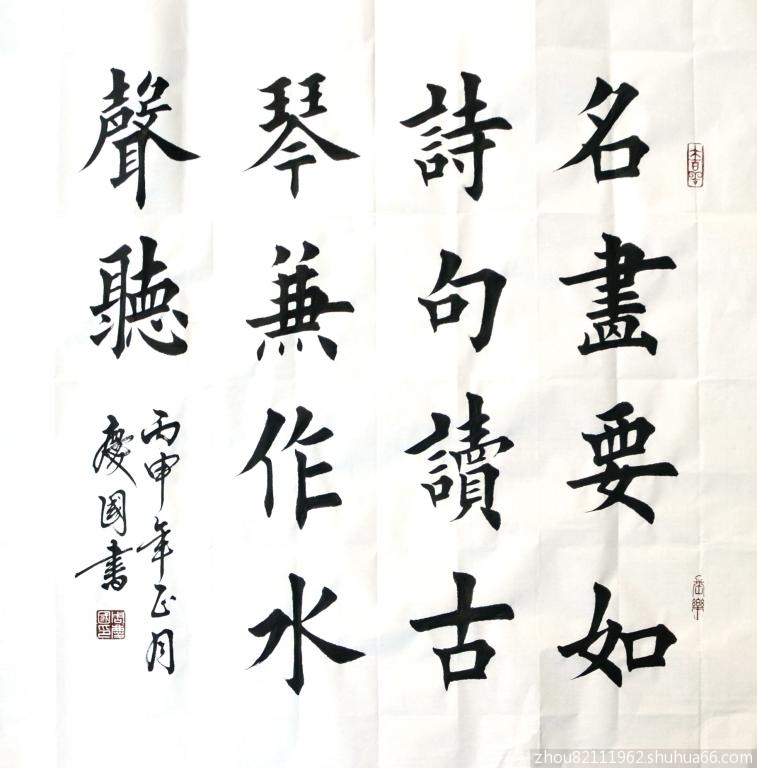 名畫要如
詩句讀古
琴兼作水
聲聽
丙申年正月
慶國書
zhou82111962.shuhua66.com